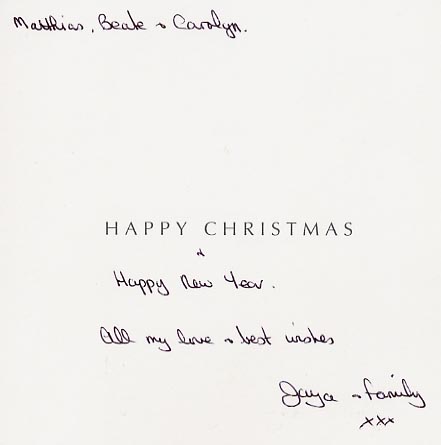 Matthias, Beate & Carolyn.
HAPPY CHRISTMAS
&
Happy New Year.
All my love & best wishes
Jaya & family
xxx